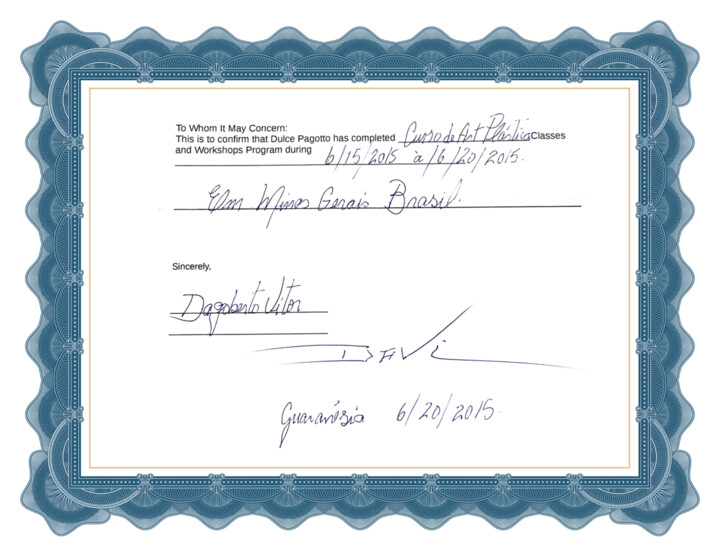 To Whom It May Concern:
This is to confirm that Dulce Pagotto has completed Curso de Art Plástica Classes
and Workshops Program during 6/15/2015 à 6/20/2015.
Em Minas Gerais Brasil.
Sincerely,
Dagoberto Vitor
Guaranésia 6/20/2015.